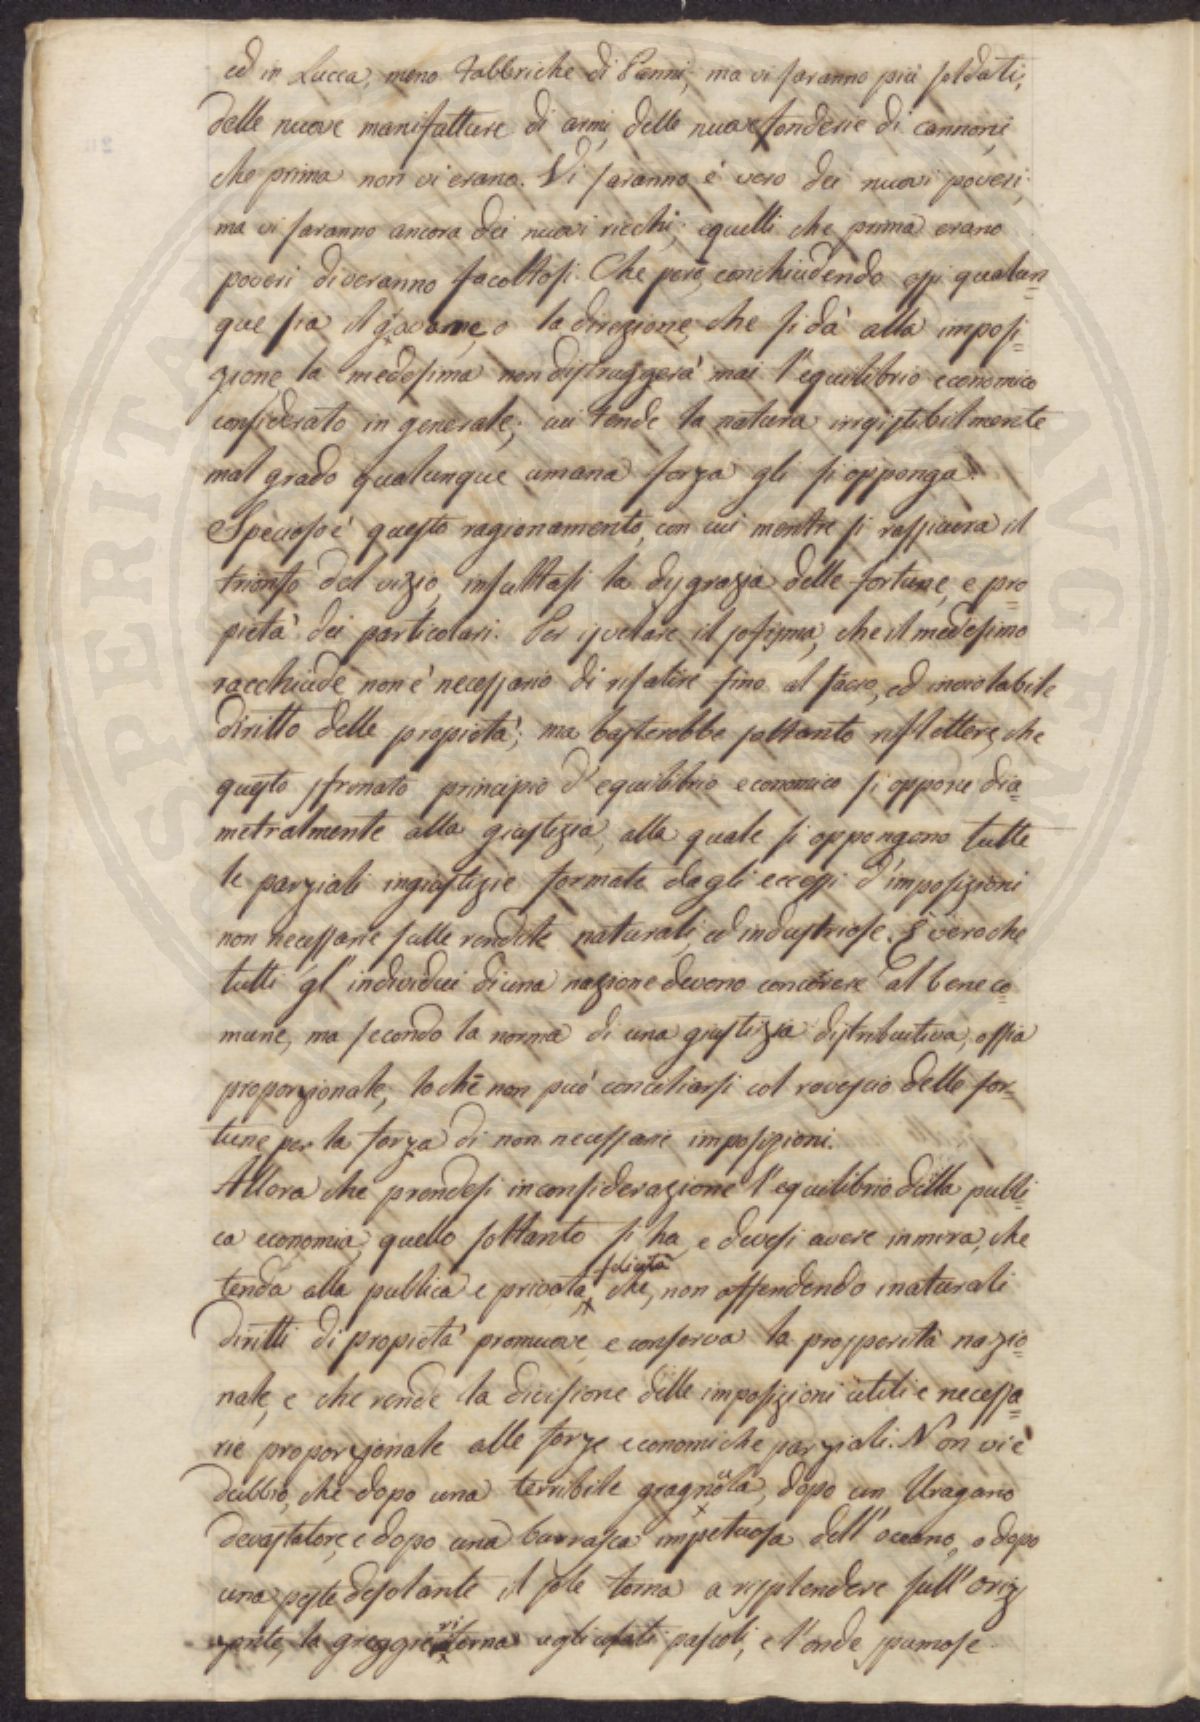 ed in Lucca, meno Fabbriche di Panni, ma vi saranno più soldati,
delle nuove manifatture di armi, delle nuove fonderie di cannoni,
che prima non vi erano. Vi saranno è vero dei nuovi poveri,
ma vi saranno ancora dei nuovi ricchi; e quelli che prima erano
poveri diveranno facoltosi. Che però conchiudendo essi qualun=
que sia il gravame, o la direzione, che si dà alla imposi=
zione la medesima non distruggerà mai l'equilibrio economico
considerato in generale; cui tende la natura irrgistibilmente
mal grado qualunque umana forza gli si opponga.
Specioso è questo ragionamento, con cui mentre si rassicura il
trionfo del vizio, insultasi la disgrazia delle fortune, e pro=
pietà dei particolari. Per isvelare il sofisma, che il medesimo
racchiude non è necessario di risalire fino al sacro, ed inviolabile
diritto delle propietà; ma basterebbe soltanto riflettere, che
questo sfrenato principio d'equilibrio economico si oppone dia=
metralmente alla giustizia, alla quale si oppongono tutte
le parziali ingiustizie formate dagli eccessi d'imposizioni
non necessarie sulle rendite naturali, ed industriose. È vero che
tutti gl'individui di una nazione devono concorere al bene co=
mune, ma secondo la norma di una giustizia distributiva, ossia
proporzionale, lo chè non può conciliarsi col rovescio delle for=
tune per la forza di non necessarie imposizioni.
Allora che prendesi in considerazione l'equilibrio della publi=
ca economia, quello soltanto si ha, e devesi avere in mira, che
tenda alla publica e privata felicità che, non offendendo i naturali
diritti di propietà promuove, e conserva la prosperità nazio=
nale, e che rende la divisione delle imposizioni utili e necessa=
rie proporzionale alle forze economiche parziali. Non vi è
dubbio, che dopo una terribile gragnuola, dopo un Uragano
devastatore, e dopo una burrasca impetuosa dell'oceano, o dopo
una peste desolante il sole torna a risplendere sull'oriz
zonte, la greggie ritorna agli usati pascoli, e l'onde spumose